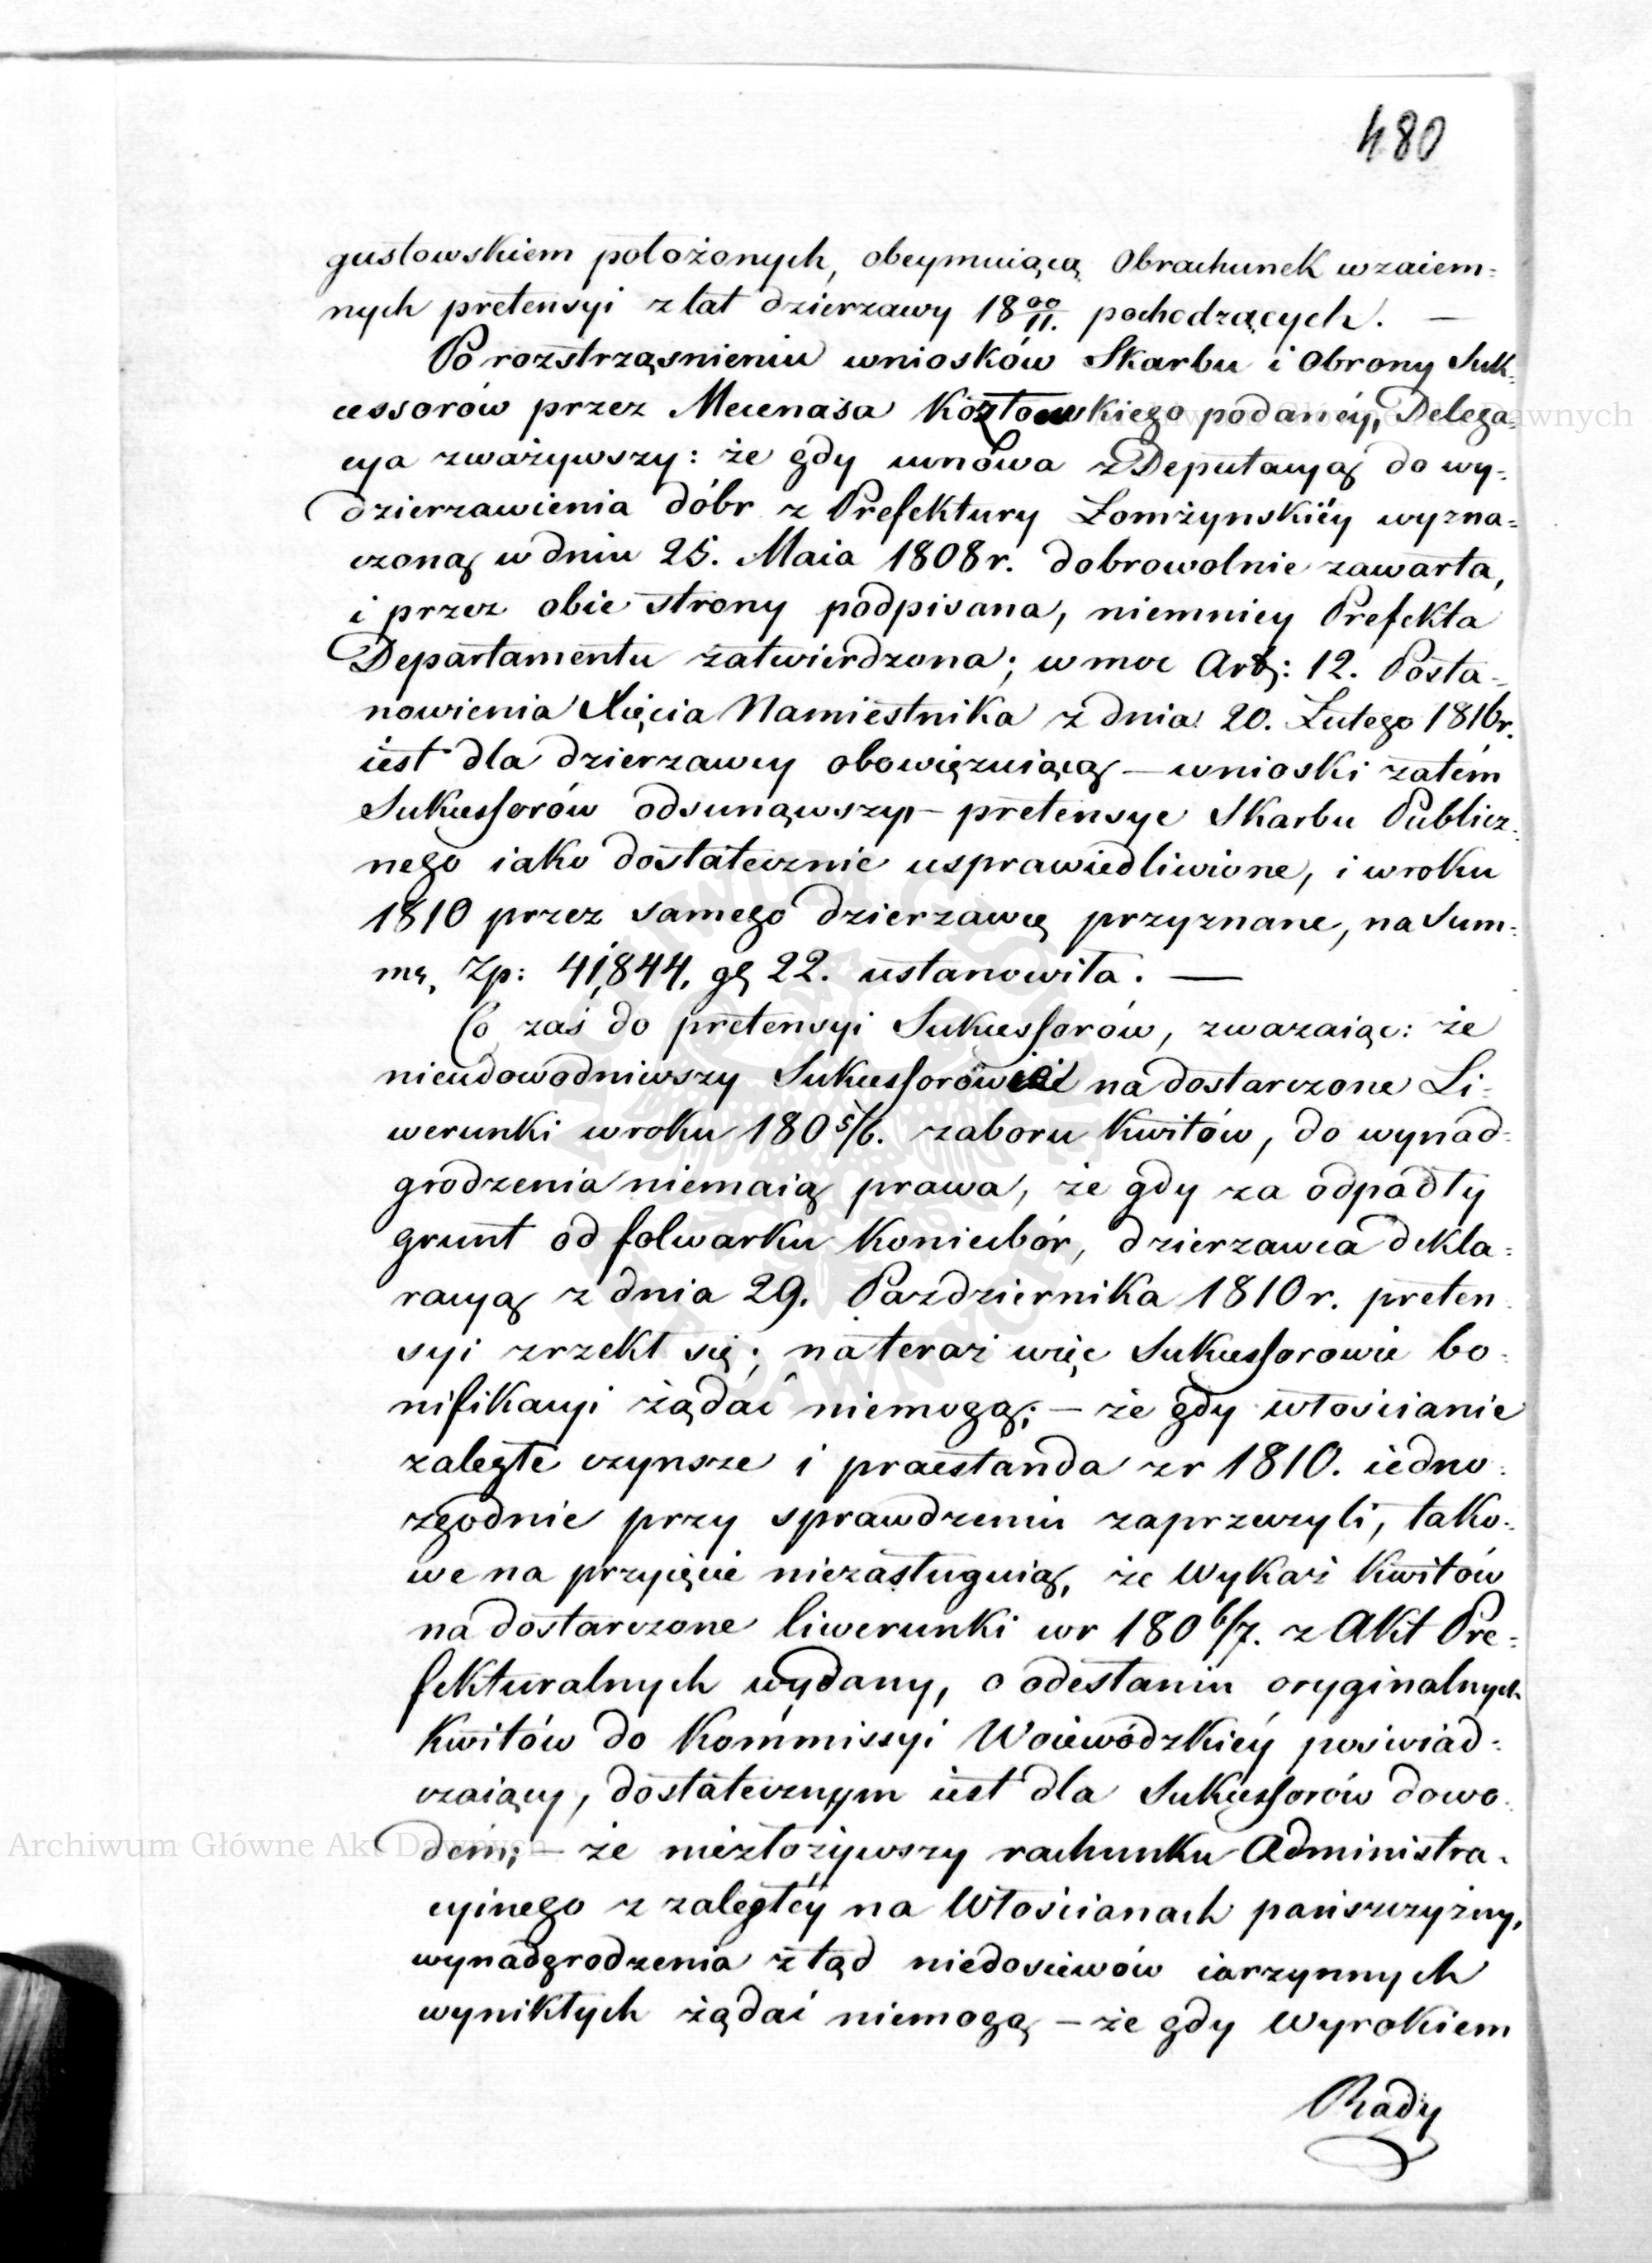 480
gustowskiem położonych, obeymuiącą Obrachunek wzaiem=
nych pretensyi z lat dzierzawy 18 00/11. pochodzących. —
Po rozstrząsnieniu wniosków Skarbu i Obrony Suk=
cessorów przez Mecenasa Kozłowskiego podanéy, Delega=
cya zważywszy: że gdy umowa z Deputacyą do wy=
dzierzawienia dóbr z Prefektury Łomżynskiéy wyzna=
czoną w dniu 25. Maia 1808 r. dobrowolnie zawarta,
i przez obie strony podpisana, niemniey Prefekta
Departamentu zatwierdzona; w moc Art: 12. Posta=
nowienia Xięcia Namiestnika z dnia 20. Lutego 1816 r.
iest dla dzierzawcy obowięzuiącą — wnioski zatém
Sukcessorów odsunąwszy — pretensye Skarbu Publicz=
nego iako dostatecznie usprawiedliwione, i w roku
1810 przez samego dzierzawcę przyznane, na Sum=
mę Zp: 41,844, gr 22. ustanowiła. —
Co zaś do pretensyi Sukcessorów, zwazaiąc: że
nieudowodniwszy Sukcessorowie na dostarczone Li=
werunki w roku 180 5/6. zaboru Kwitów, do wynad=
grodzenia niemaią prawa, że gdy za odpadły
grunt od folwarku Koniecbór, dzierzawca dekla=
racyą z dnia 29. Pazdziernika 1810 r. preten=
syi zrzekł się; na teraz więc Sukcessorowie bo=
nifikacyi żądać niemogą; — że gdy włościanie
zaległe czynsze i praestanda z r 1810. iedno=
zgodnie przy sprawdzeniu zaprzeczyli, tako=
we na przyięcie niezasługuią, że Wykaz Kwitów
na dostarczone liwerunki w r 180 6/7. z Akt Pre=
fekturalnych wydany, o odesłaniu oryginalnych
Kwitów do Kommissyi Woiewódzkiéy poswiad=
czaiący, dostatecznym iest dla Sukcessorów dowo=
dém; — że niezłożywszy rachunku Administra=
cyinego z zaległéy na Włościanach pańszczyzny,
wynadgrodzenia ztąd niedosiewów iarzynnych
wynikłych żądać niemogą — że gdy Wyrokiem
Rady
Archiwum Główne Akt Dawnych